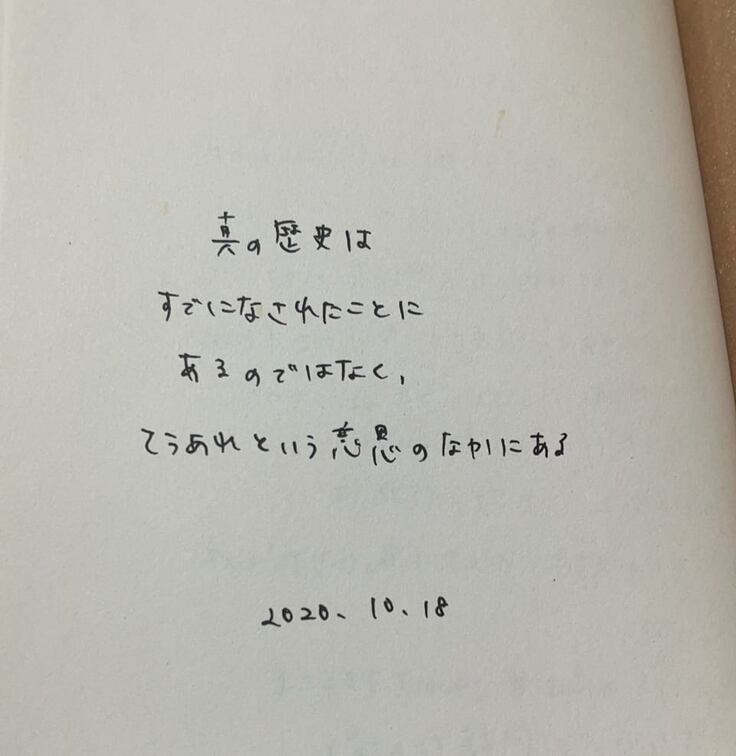 真の歴史は
すでになされたことに
あるのではなく,
こうあれという意思のなかにある
2020、10、18